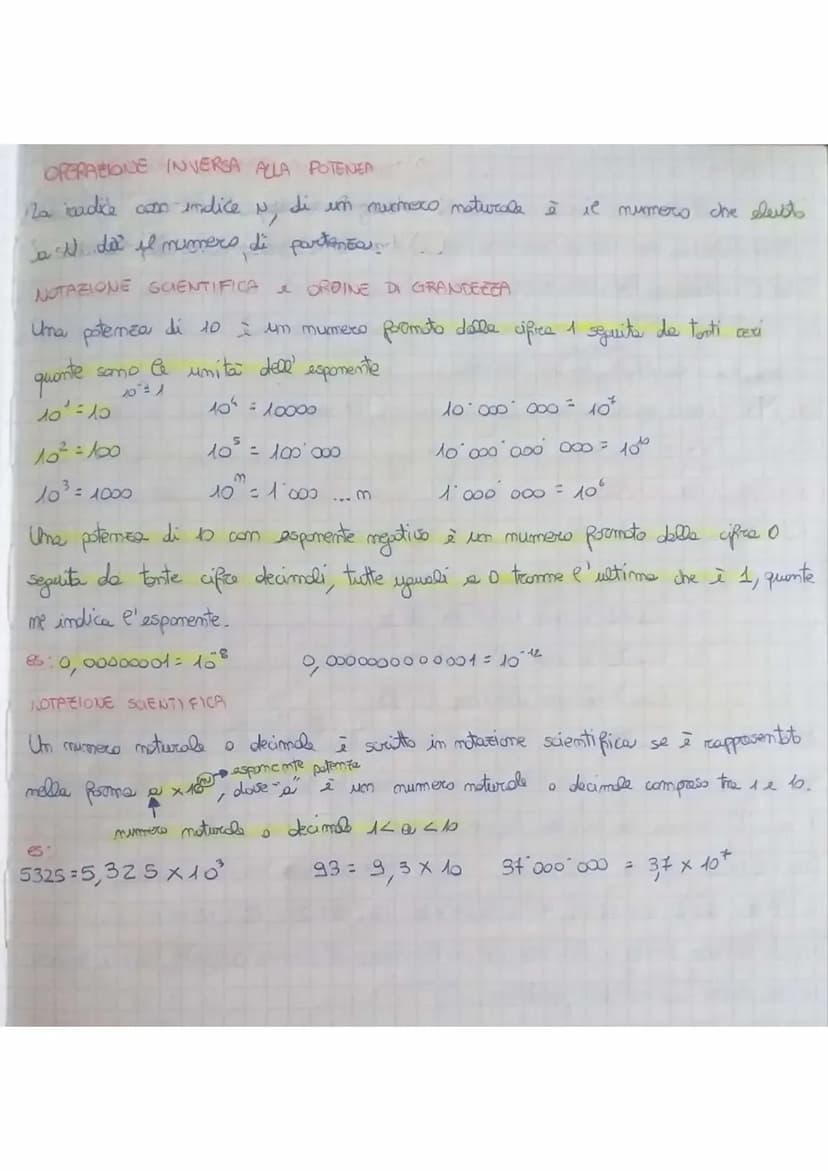 OPERAZIONE INVERSA ALLA POTENZA
La radice con indice N, di un numero naturale è il numero che elevato
a N dà il numero di partenza.
NOTAZIONE SCIENTIFICA e ORDINE DI GRANDEZZA
Una potenza di 10 è un numero formato dalla cifra 1 seguita da tanti zeri
quante sono le unità dell'esponente
10⁰=1
10¹=10 10⁴=10000 10'000'000=10⁷
10²=100 10⁵=100'000 10'000'000'000=10¹⁰
10³=1000 10ⁿ=1'000...n 1'000'000=10⁶
Una potenza di 10 con esponente negativo è un numero formato dalla cifra 0
seguita da tante cifre decimali, tutte uguali a 0 tranne l'ultima che è 1, quante
ne indica l'esponente.
es: 0,00000001=10⁻⁸ 0,0000000000001=10⁻¹²
NOTAZIONE SCIENTIFICA
Un numero naturale o decimale è scritto in notazione scientifica se è rappresentato
esponente potenza
nella forma a x10ⁿ, dove "a" è un numero naturale o decimale compreso tra 1 e 10.
numero naturale o decimale 1<a<10
es:
5325=5,325x10³ 93=9,3x10 37'000'000=3,7x10⁷